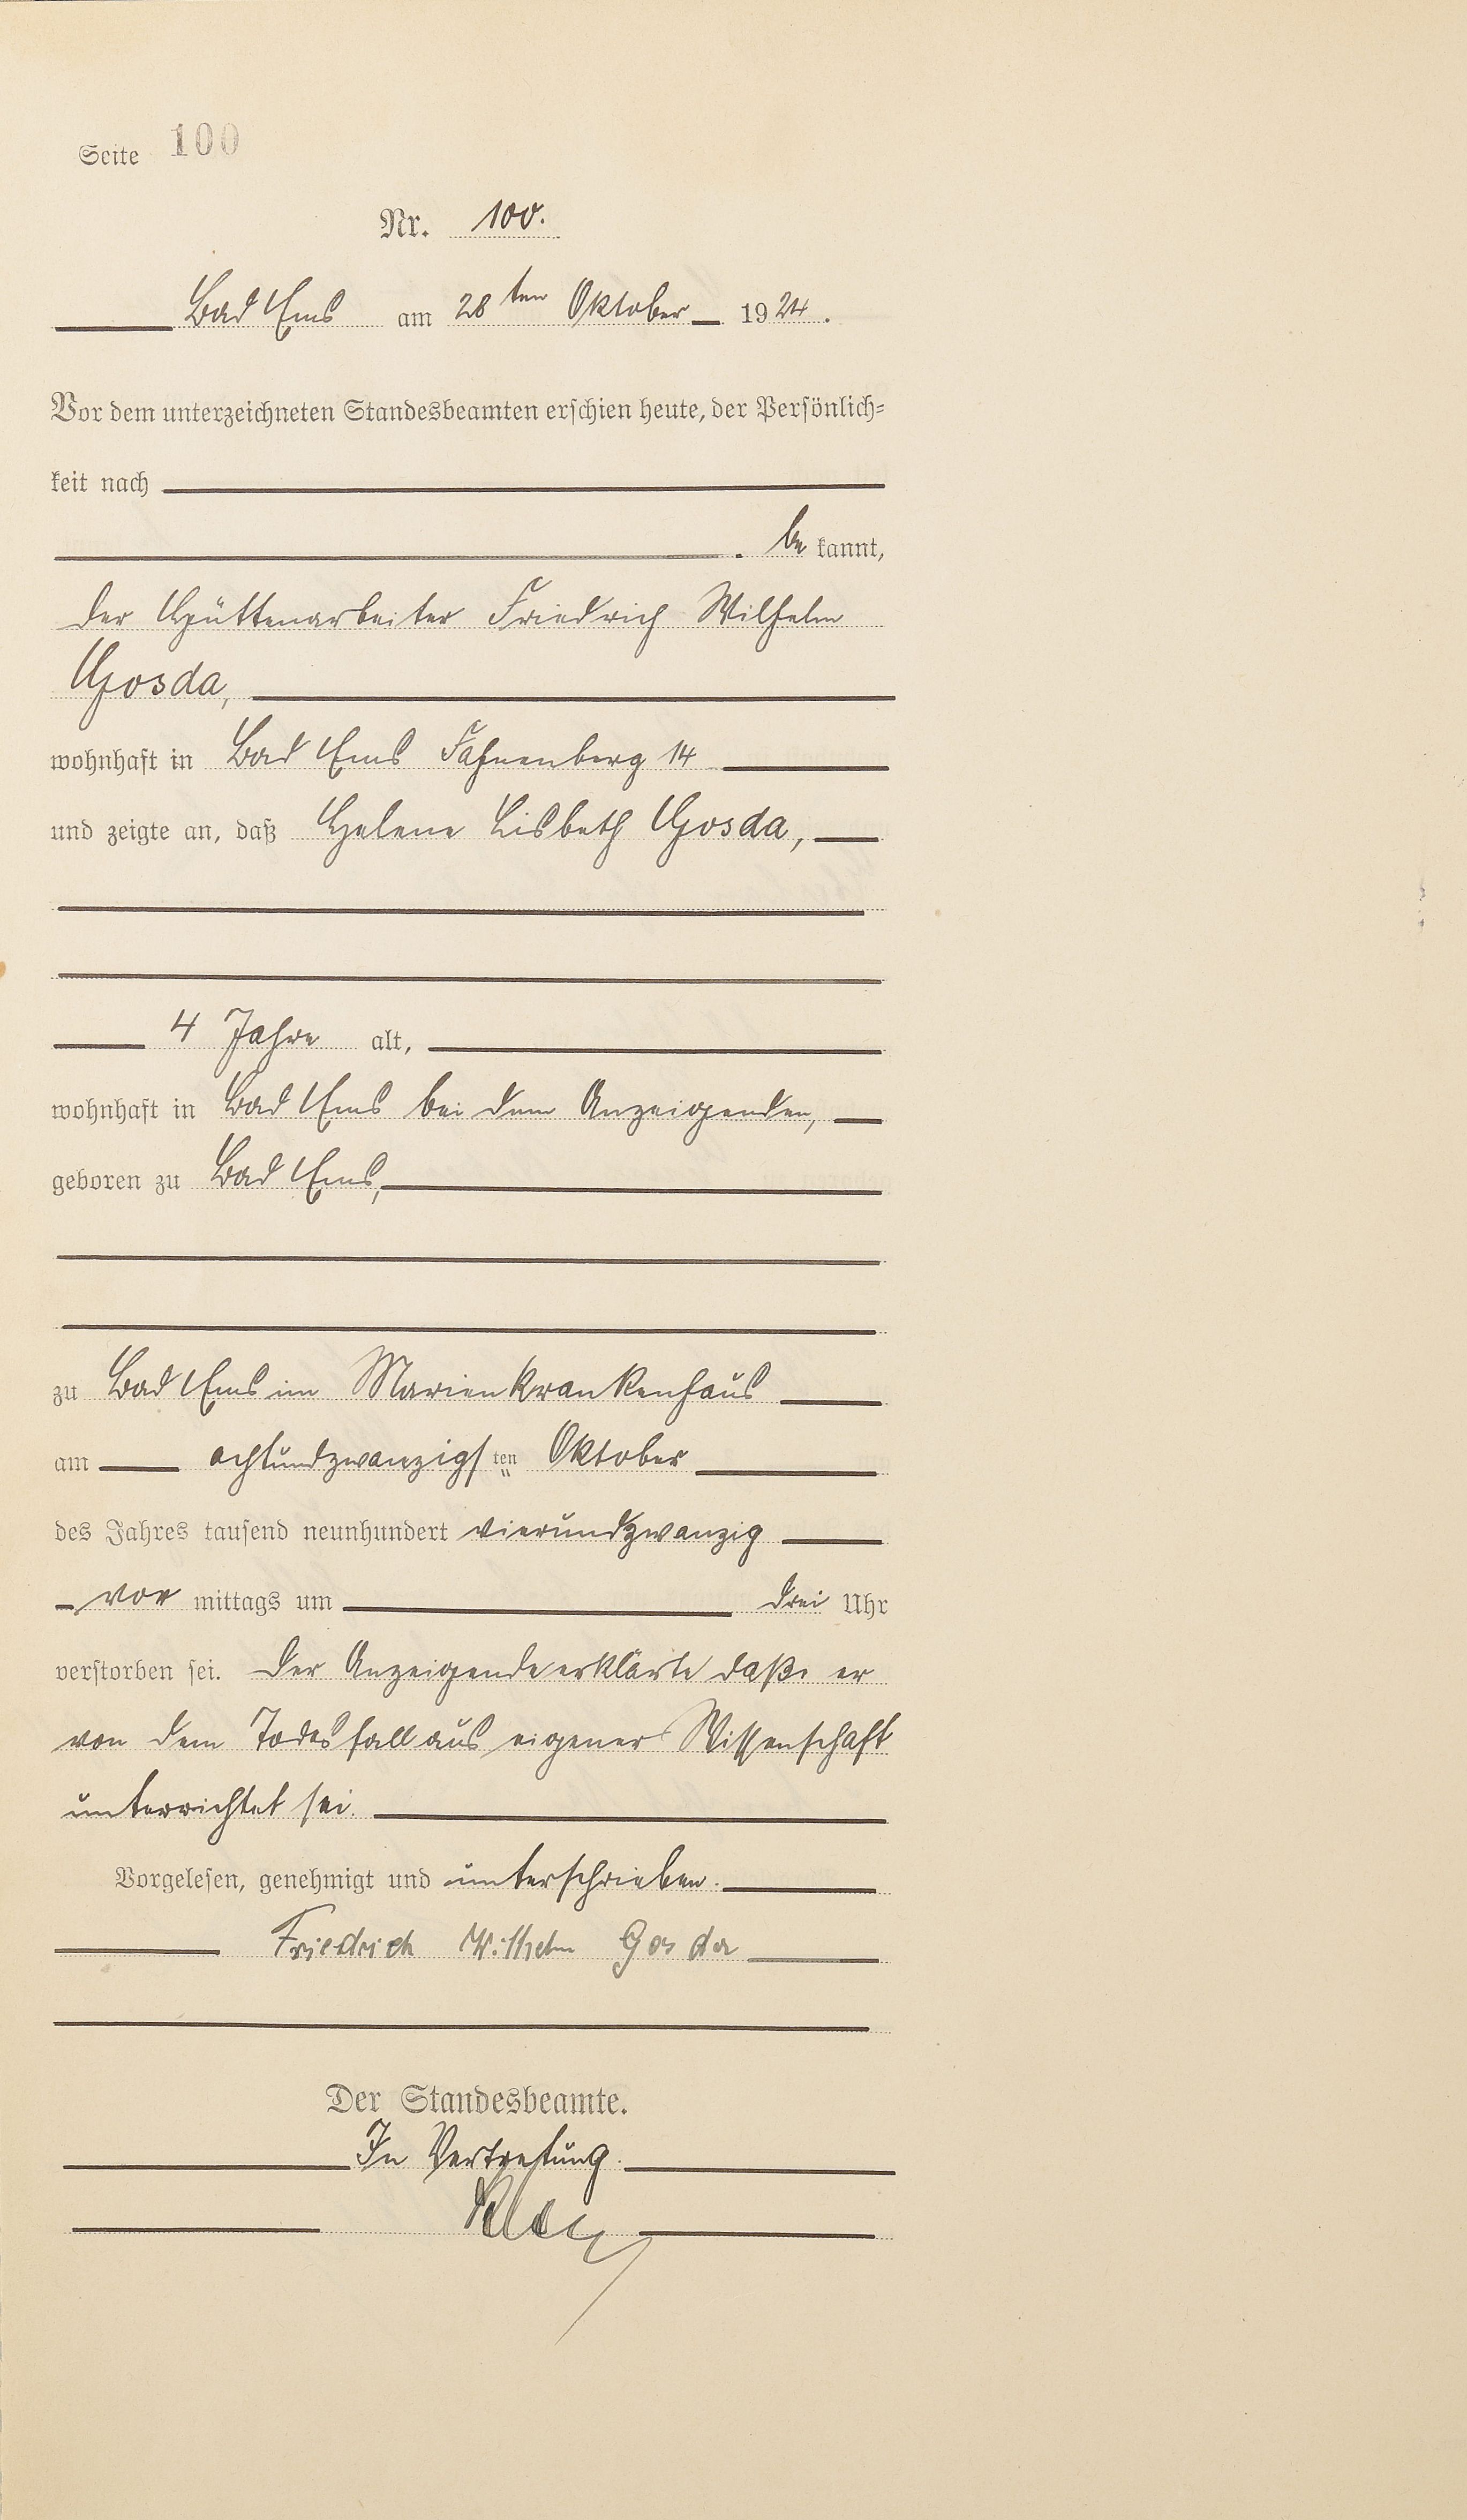 Seite 100
Nr. 100.
Bad Ems am 28ten Oktober 1924.
Vor dem unterzeichneten Standesbeamten erschien heute, der Persönlich-
keit nach
be kannt,
der Hüttenarbeiter Friedrich Wilhelm
Gosda,
wohnhaft in Bad Ems Fahnenberg 14
und zeigte an, daß Helene Lisbeth Gosda,
4 Jahre alt,
wohnhaft in Bad Ems bei dem Anzeigenden,
geboren zu Bad Ems,
zu Bad Ems im Marienkrankenhaus
am achtundzwanzigsten Oktober
des Jahres tausend neunhundert vierundzwanzig
vor mittags um drei Uhr
verstorben sei. Der Anzeigende erklärte daß er
von dem Todesfall aus eigener Wissenschaft
unterrichtet sei.
Vorgelesen, genehmigt und unterschrieben.
Friedrich Wilhelm Gosda
Der Standesbeamte.
In Vertretung.